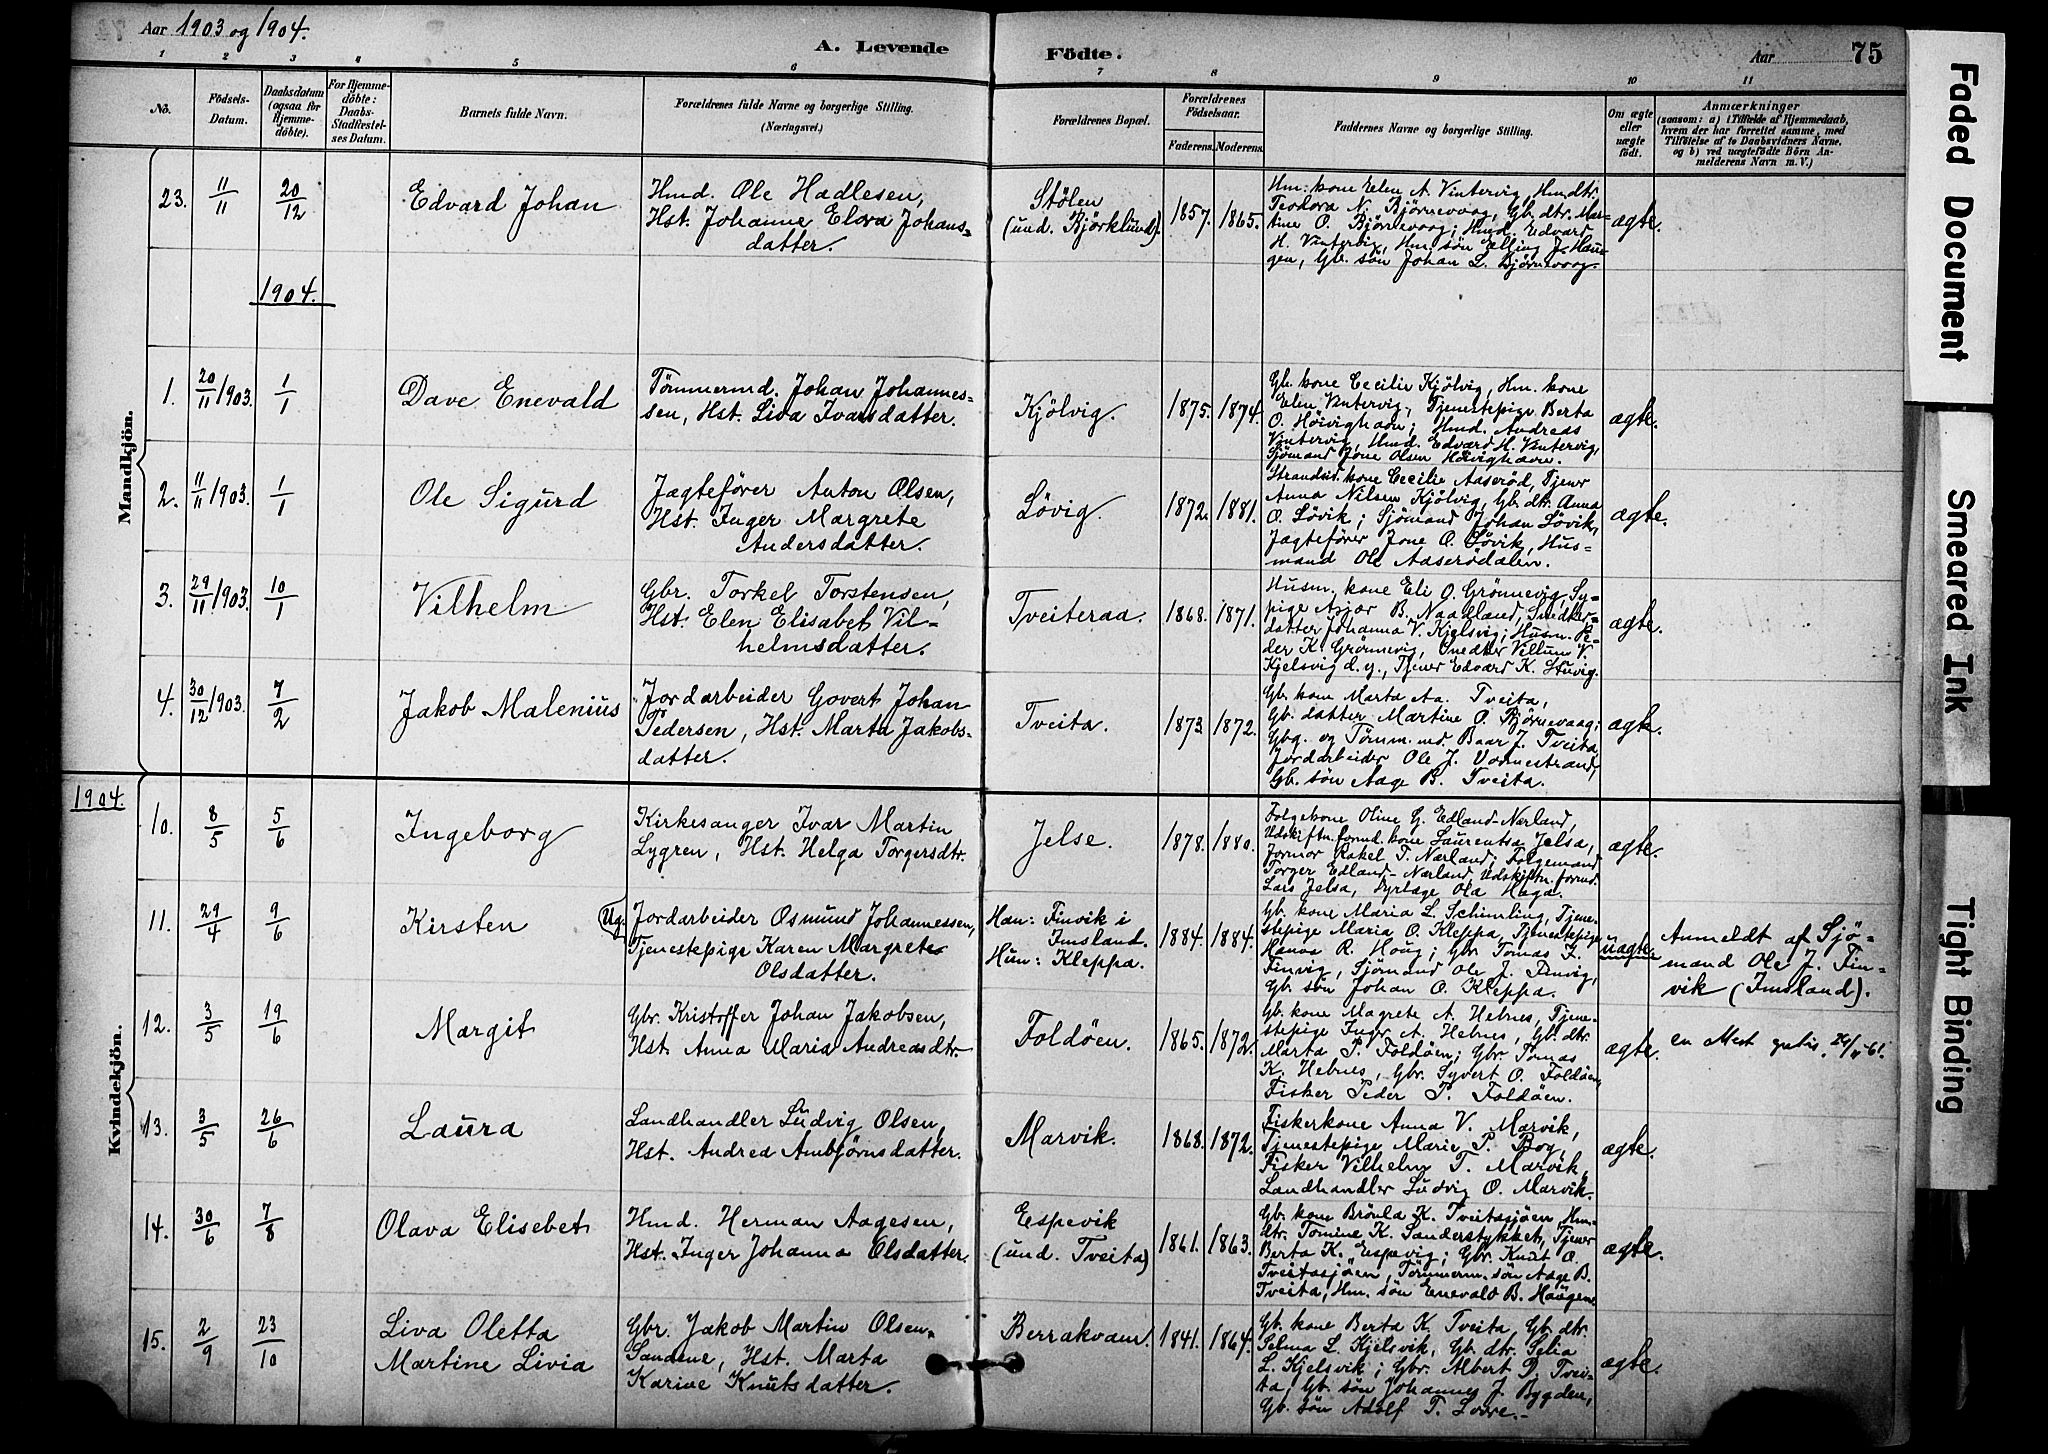 Aar 1903 og 1904.
A. Levende Födte.
Aar 75
1 2 3 4 5 6 7 8 9 10 11
No.
Födsels-Datum.
Daabsdatum (ogsaa för Hjemme-döbte).
For Hjemme-döbte: Daabs-Stadfæstel-ses Datum.
Barnets fulde Navn.
Forældrenes fulde Navne og borgerlige Stilling.
(Næringsvei.)
Forældrenes Bopæl.
Forældrenes Födselsaar.
Faderens. Moderens.
Faddernes Navne og borgerlige Stilling.
Om ægte eller uægte födt.
Anmærkninger
(saasom: a) i Tilfælde af Hjemmedaab,
hvem der har forrettet samme, med
Tilföielse af to Daabsvidners Navne,
og b) ved uægtefödte Börn An-
melderens Navn m. V.)
Mandkjön.
23. 11/11 20/12 Edvard Johan
Hmd. Ole Hadlesen,
Hst. Johanne Elora Johans-
datter.
Stölen
(und. Björklund).
1857. 1865.
Hm: kone Elen A. Vintervig, Hm dtr.
Teodora N. Bjørnevaag, Gb. dtr. Mar-
tine O. Bjørnevaag; Hmd. Edvard
H. Vintervig, Hm. søn Elling J. Hau-
gen, Gb. søn Johan L. Bjørnevaag.
ægte.
1904.
1. 20/11 1903. 1/1 Dave Enevald
Tømmermd. Johan Johannes-
sen, Hst. Liva Ivarsdatter.
Kjölvig.
1875. 1874.
Gb. kone Cecilie Kjölvig, Hm. kone
Elen Vintervig, Tjenestepige Berta
O. Høivighavn; Hmd. Andreas
Vintervig, Hmd. Edvard H. Vintervig,
Sjömand Jone Olsen Høivighavn.
ægte.
2. 11/11 1903. 1/1 Ole Sigurd
Jægtefører Anton Olsen,
Hst. Inger Margrete
Andersdatter.
Løvig.
1872. 1881.
Strandsid. kone Cecilie Aaserød, Tjener
Anna Nilsen Kjölvig, Gb. dtr. Anna
O. Løvik; Sjömand Johan Løvik,
Jægtefører Jone O. Løvik, Hus-
mand Ole Aaserødalen.
ægte.
3. 29/11 1903. 10/1 Vilhelm
Gbr. Torkel Torstensen,
Hst. Elen Elisabet Vil-
helmsdatter.
Tveiteraa.
1868. 1871.
Husm. kone Eli O. Grönnevig, Sy-
pige Asjor B. Naadland,
datter Johanna V. Kjelsvig; Husm. Pe-
der K. Grønnevig, Snedker Villum V.
Kjelsvig d. y., Tjener Edvard K. Stuvig.
ægte.
4. 30/12 1903. 7/2 Jakob Malenius
Jordarbeider Govert Johan
Pedersen, Hst. Marta Jakobs-
datter.
Tveita.
1873. 1872.
Gb. kone Marta Aa. Tveita,
Gb. datter Martine O. Bjørnevaag;
Gbg. og Tømm. md. Baar J. Tveita,
Jordarbeider Ole J. Vormestrand,
Gb. søn Aage B. Tveita.
ægte.
1904.
Kvindekjön.
10. 8/5 5/6 Ingeborg
Kirkesanger Ivar Martin
Lygren, Hst. Helga Torgersdtr.
Jelse.
1878. 1880.
Folgekone Oline G. Edland-Nærland,
Udskiftn. formd. kone Laurentsa Jelsa,
Jormor Rakel T. Nærland; Folgemand
Torger Edland-Nærland, Udskiftn. formd.
Lars Jelsa, Dyrlæge Ola Haga.
ægte.
11. 29/4 9/6 Kirsten
Ug. Jordarbeider Osmund Johannessen,
Tjenestepige Karen Margrete
Olsdatter.
Han: Finvik i
Imsland.
Hun: Kleppa.
1884. 1884.
Gb. kone Maria L. Schimling, Tjene-
stepige Maria O. Kleppa, Tjenestepige
Hanna R. Houg; Gbr. Tomas F.
Finvig, Sjømand Ole J. Finvig,
Gb. søn Johan O. Kleppa.
uægte
Anmeldt af Sjö-
mand Ole J. Fin-
vik (Imsland).
12. 3/5 19/6 Margit
Gbr. Kristoffer Johan Jakobsen,
Hst. Anna Maria Andreasdtr.
Foldöen.
1865. 1872.
Gb. kone Magrete A. Hebnes, Tjene-
stepige Inger A. Hebnes, Gb. dtr.
Marta P. Foldöen; Gbr. Tomas
K. Hebnes, Gbr. Syvert O. Foldöen,
Fisker Peder P. Foldöen.
ægte.
en Attest gratis
13. 3/5 26/6 Laura
Landhandler Ludvig Olsen,
Hst. Andrea Ambjørnsdatter.
Marvik.
1868. 1872.
Fiskerkone Anna V. Marvik,
Tjenestepige Marie P. Bog,
Fisker Vilhelm T. Marvik,
Landhandler Ludvig O. Marvik.
ægte.
14. 30/6 7/8 Olava Elisebet
Hmd. Herman Aagesen,
Hst. Inger Johanna Olsdatter.
Espevik
(und. Tveita)
1861. 1863.
Gb. kone Brönla K. Tveitasjöen, Hm-
dtr. Tomine K. Sanderstykket, Tjener
Berta K. Espevig; Gbr. Knut O.
Tveitasjöen, Tømmerm. søn Aage B.
Tveita, Hm. søn Enevald B. Haugen.
ægte.
15. 2/9 23/10 Liva Oletta
Martine Livia
Gbr. Jakob Martin Olsen-
Sandene, Hst. Marta
Karine Knutsdatter.
Berrakvam.
1841. 1864.
Gb. kone Berta K. Tveita, Gb. dtr.
Selma L. Kjelsvik, Gb. dtr. Selia
L. Kjelsvik; Gbr. Albert D. Tvei-
ta, Gb. søn Johannes J. Bygden,
Gb. søn Adolf T. Lovre.
ægte.
Faded Document
Smeared Ink
Tight Binding